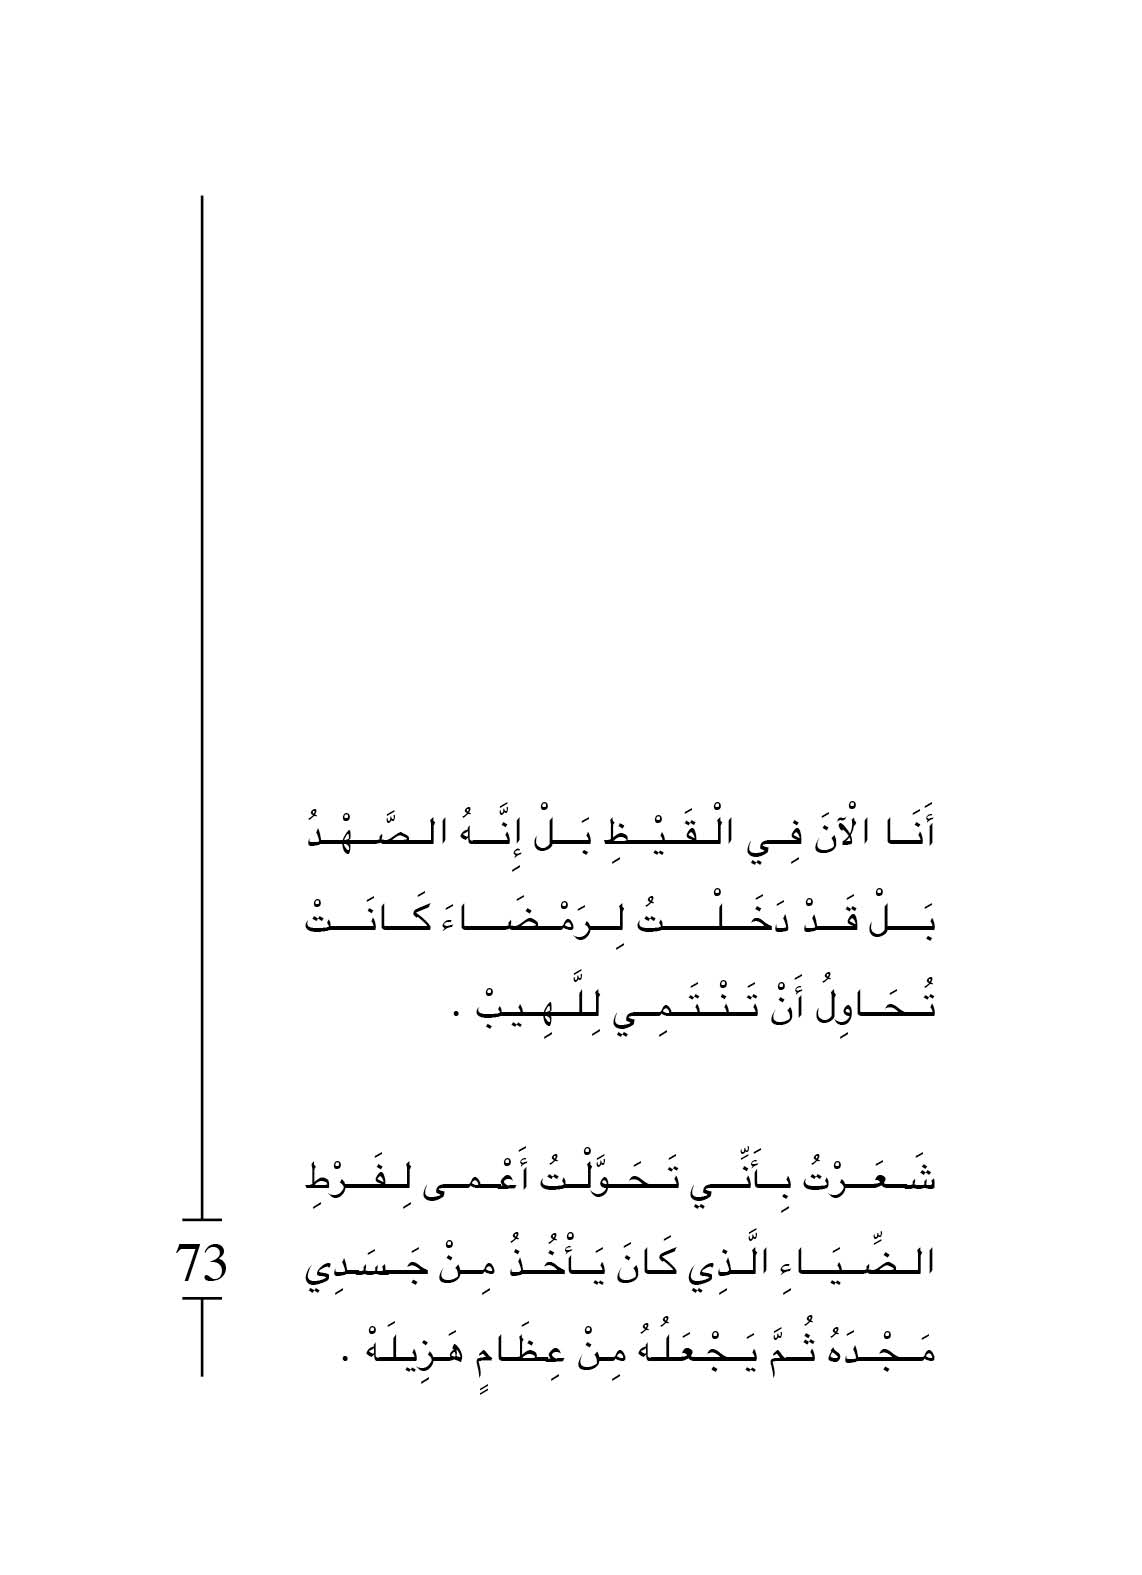 أَنَا الْآنَ فِي الْقَيْظِ بَلْ إِنَّهُ الصَّهْدُ
بَلْ قَدْ دَخَلْتُ لِرَمْضَاءَ كَانَتْ
تُحَاوِلُ أَنْ تَنْتَمِي لِلَّهِيبْ .
شَعَرْتُ بِأَنِّي تَحَوَّلْتُ أَعْمى لِفَرْطِ
الضِّيَاءِ الَّذِي كَانَ يَأْخُذُ مِنْ جَسَدِي
مَجْدَهُ ثُمَّ يَجْعَلُهُ مِنْ عِظَامٍ هَزِيلَهْ .
73